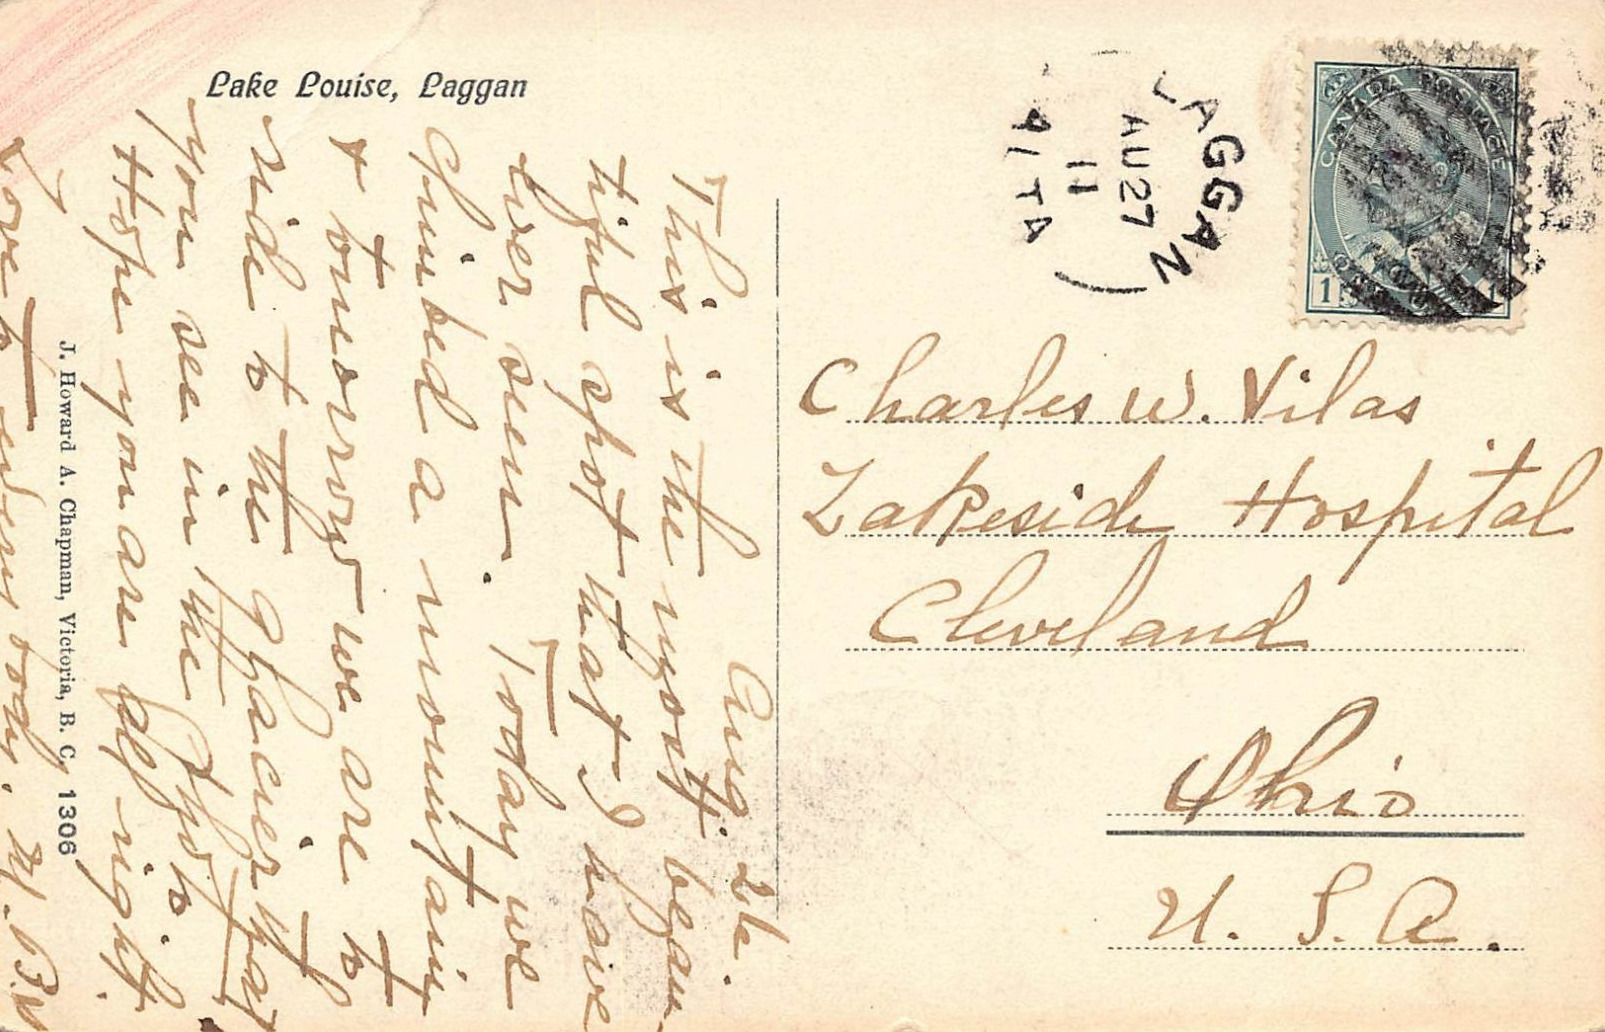 Lake Louise, Laggan
Aug 26.
This is the most beau
tiful spot that I have
ever seen. Today we
climbed a mountain
& tomorrow we are to
ride to the glacier that
you see in the photo.
Hope you are all right.
Love to everybody.
J. Howard A. Chapman, Victoria, B. C. 1306
LAGGAN
AU 27
11
ALTA
CANADA POSTAGE
1 1
Charles W. Vilas
Lakeside Hospital
Cleveland
Ohio
U. S. A.